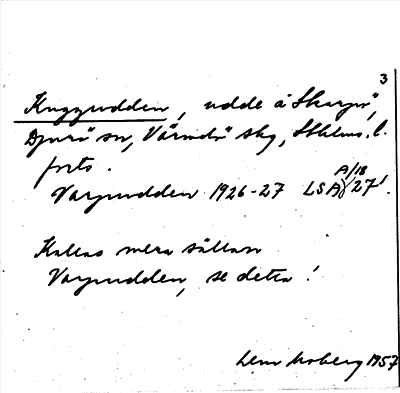 3
Kuggudden, udde å Skarpö,
Djurö sn, Värmdö skg, Sthlms. l.
forts.
Vargudden 1926-27 LSA A/18 27!
Kallas mera sällan
Vargudden, se detta!
Lena Moberg 1957